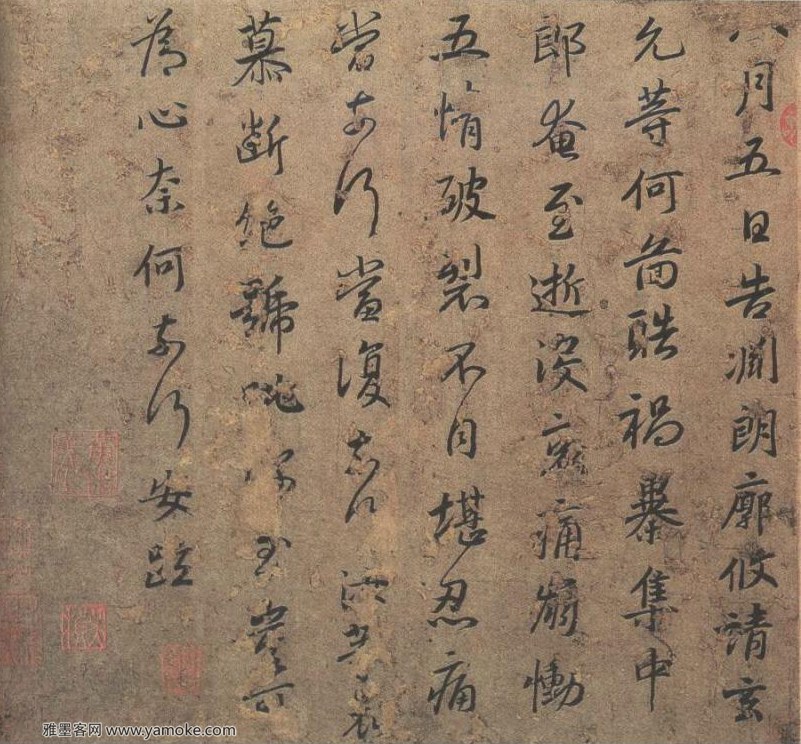 八月五日告渕朗廓攸靖玄
允等何啚酷禍暴集中
郎奄至逝没哀痛崩慟
五情破裂不自堪忍痛
當奈何當復奈何汝等哀
慕斷絕號咷深至豈可
為心奈何奈何安疏
雅墨客网 www.yamoke.com